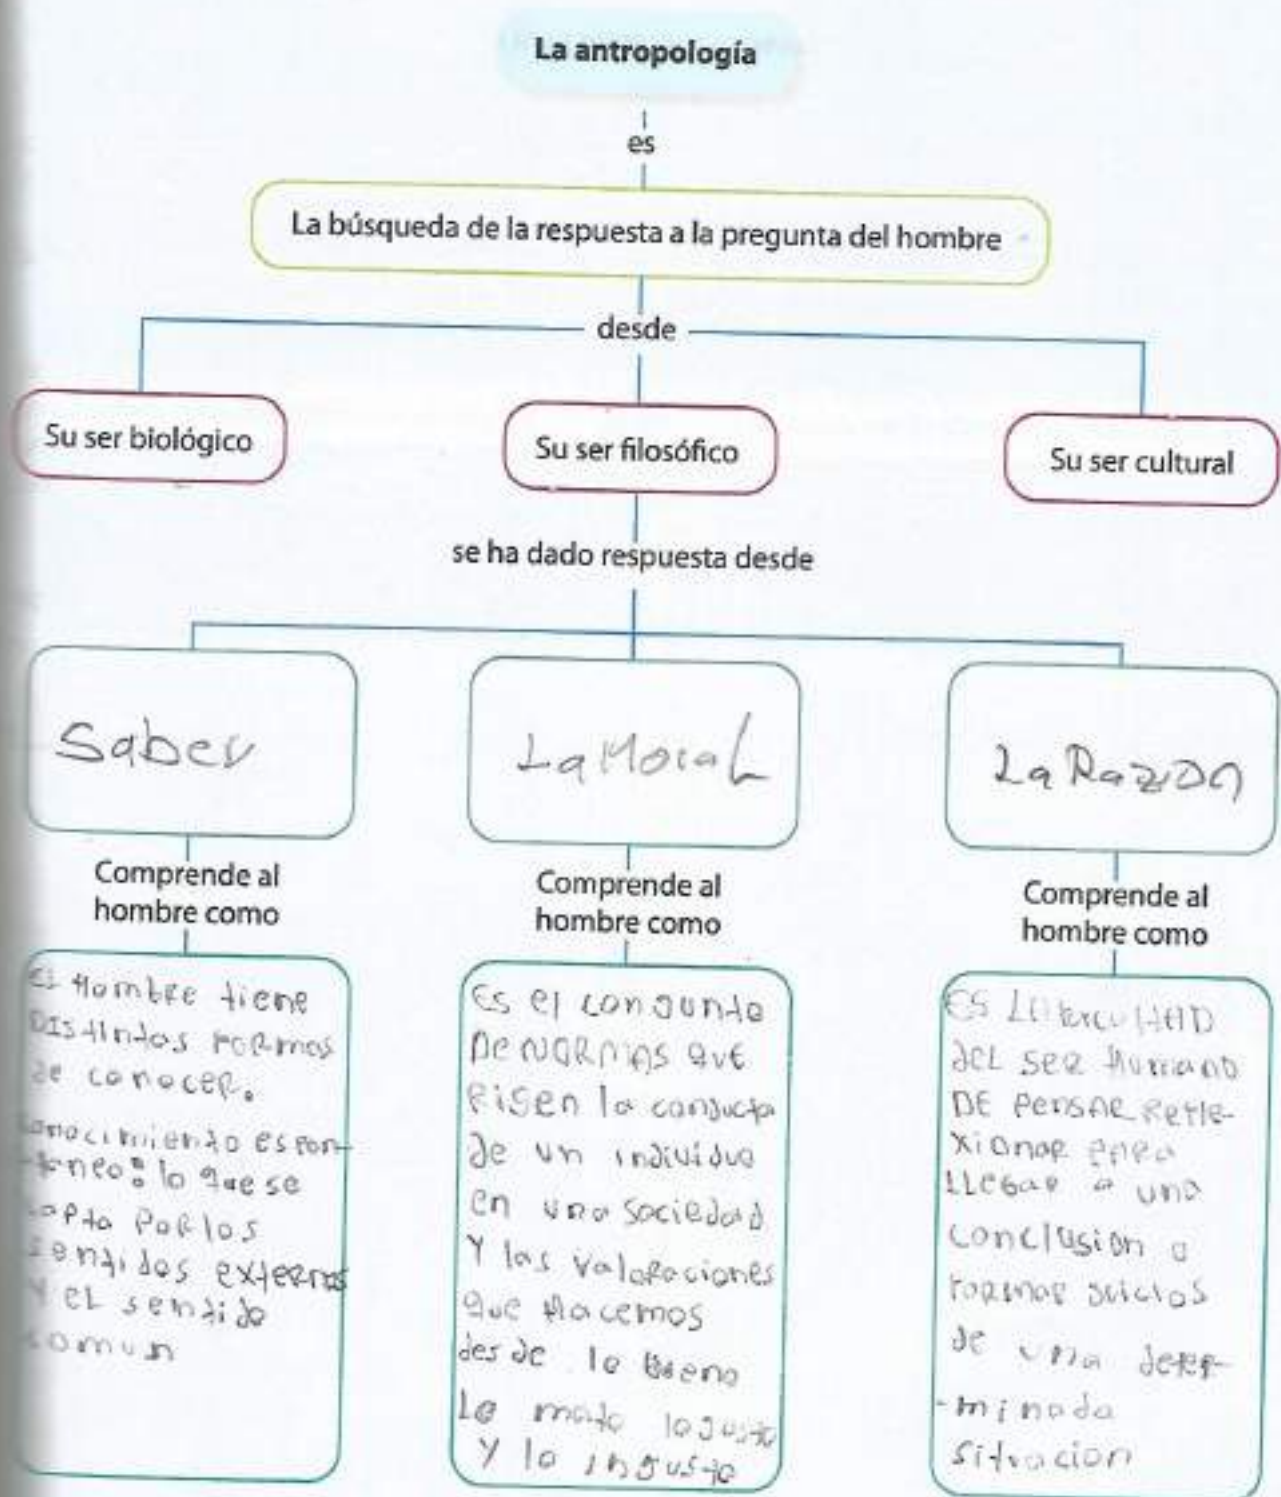 La antropología
es
La búsqueda de la respuesta a la pregunta del hombre
desde
Su ser biológico
Su ser filosófico
Su ser cultural
se ha dado respuesta desde
Saber
La Moral
La Razon
Comprende al
hombre como
Comprende al
hombre como
Comprende al
hombre como
El Hombre tiene
DIstintas FoRmas
de conoceR.
conocimiento espon-
-taneo: lo que se
capta PoR los
sentidos exteRnos
Y el sentido
comun
Es el congunto
DE NORMAS QUE
Rigen la conducta
de un individuo
en una sociedad
Y las valoRaciones
que Hacemos
desde lo bueno
Lo malo lo Justo
Y lo ingusto
ES LA FacultAD
del seR Humano
DE PensAR Refle-
xionaR paRa
LLegaR a una
conclusion o
FoRmaR Juicios
de una deteR-
-minada
situacion